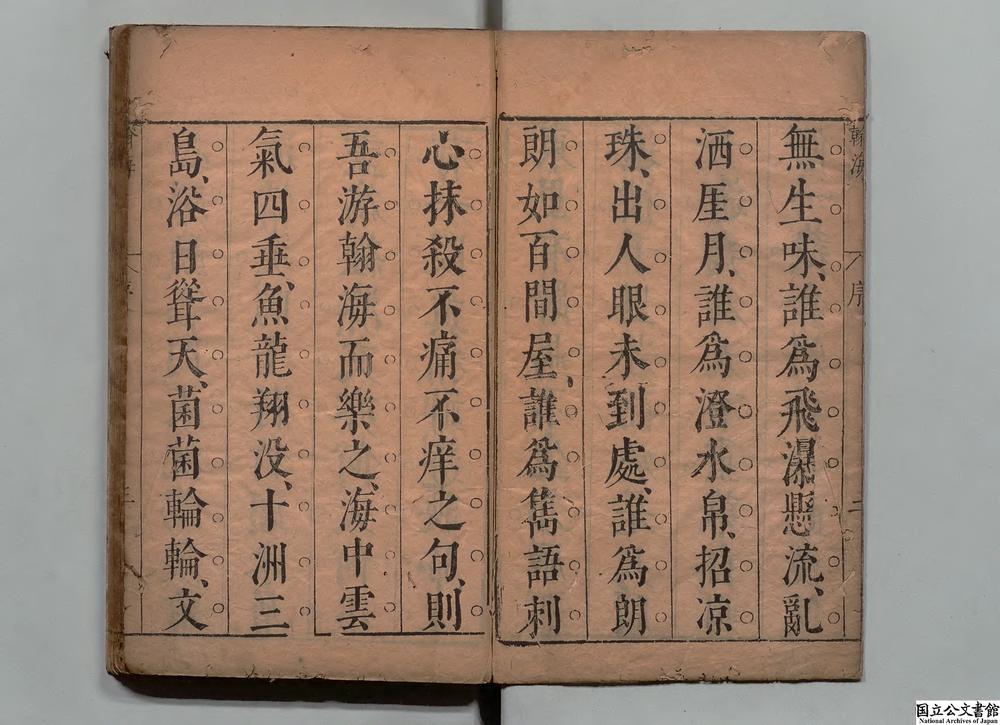 翰海
序
二
無生味、誰爲飛瀑懸流、亂
洒厓月、誰爲澄水帛、招凉
珠、出人眼未到處、誰爲朗
朗如百間屋、誰爲雋語刺
心抹殺不痛不痒之句、則
吾游翰海而樂之、海中雲
氣四垂、魚龍翔没、十洲三
島、浴日聳天、菌菌輪輪、文
国立公文書館
National Archives of Japan